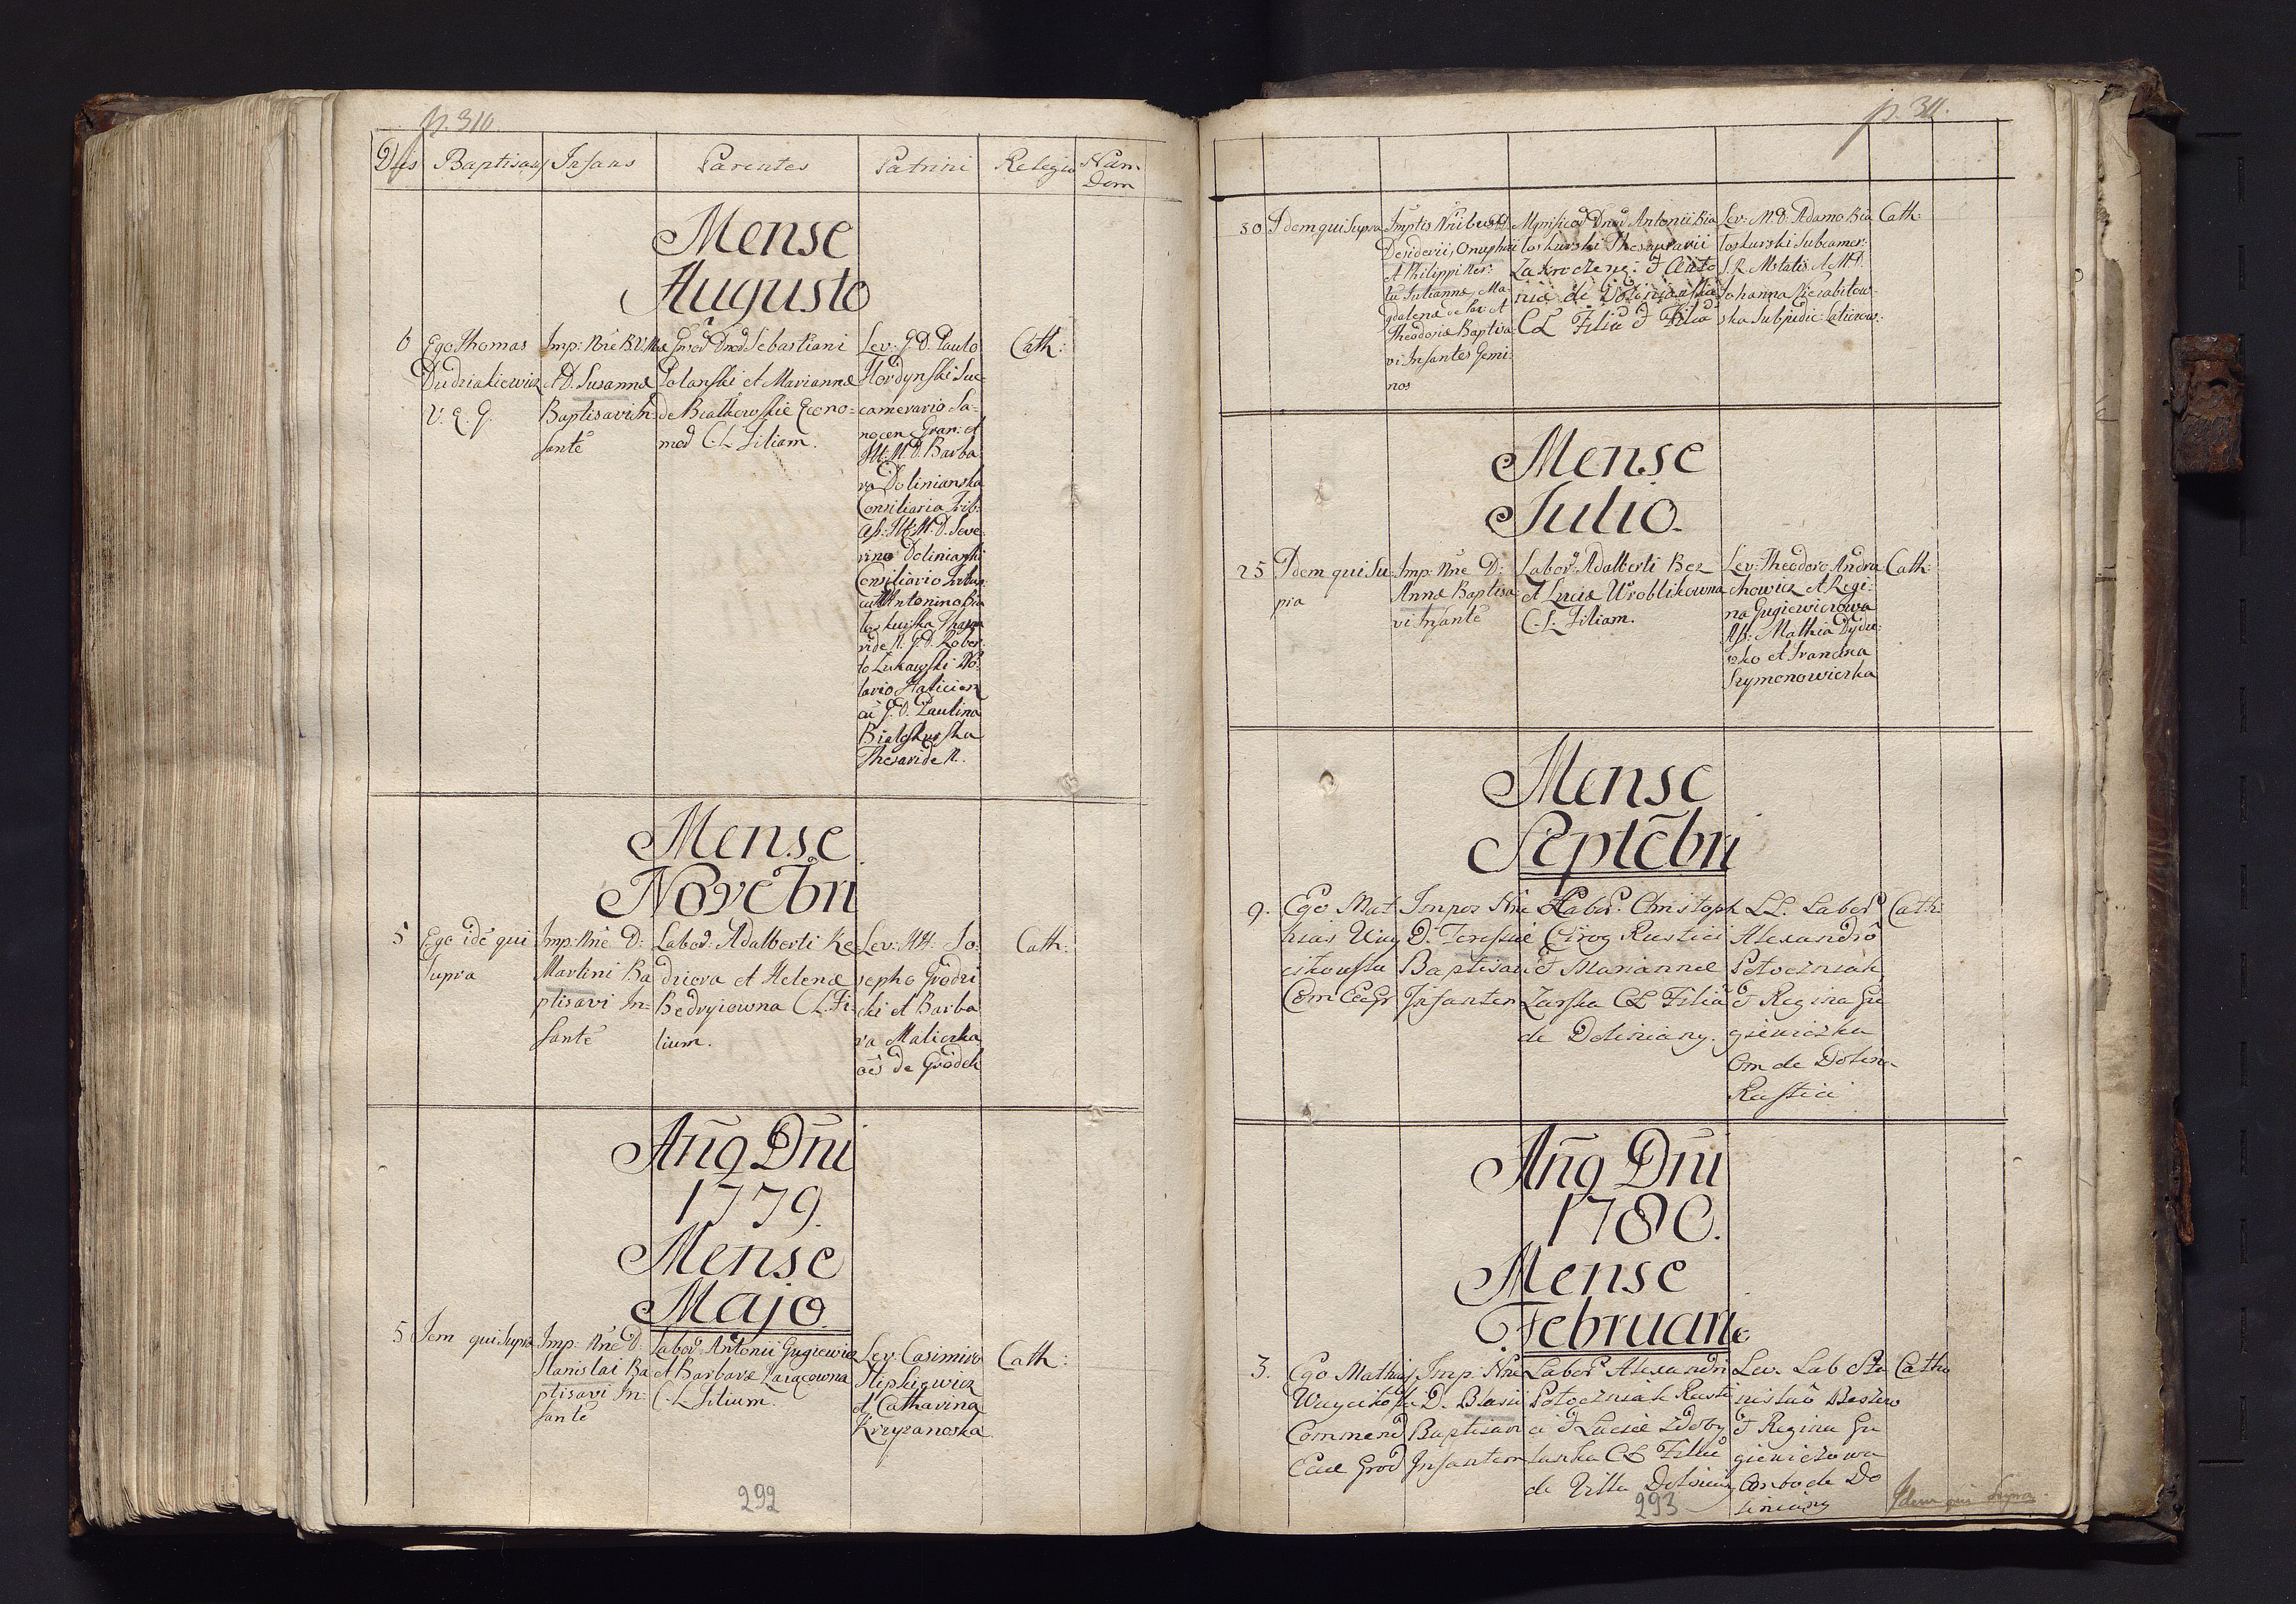 p. 310.
Dies Baptisans Infans Parentes Patrini Religio Num. Dom
Mense
Augusto
6
Ego Thomas
Dudziakiewicz
V. E. G.
Imp: Nñe B.V. Mae
et D. Susannæ
Baptisavi In-
fantē
Sebastiani
Polanski et Mariannæ
de Białkowskie Econo-
mod C. L. Filiam.
Lev: G. D. Paulo
Hordynski Suc-
camerario Sa-
nocen Gran: et
Ill. M. D. Barba
ra Dolinianska
Consiliaria Trib:
As: Ill. M. D. Seve
rino Dolinianski
Consiliario
Antonina Bia
loskurska
ride N. G. D. Rober
to Lukawski No-
tario Halicien
G. D. Paulina
Bialoskurska
Thesaride N.
Cath:
Mense
Novēbri
5
Ego idē qui
supra
Imp: Nñe D:
Martini Ba
ptisavi In-
fantē
Labor: Adalberti Ke
dziora et Helenæ
Bedryiowna C. L. Fi-
lium.
Lev: HH: Jo-
sepho Grodzi
cki et Barba
ra Maliczka
de Grodek
Cath:
Año Dñi
1779.
Mense
Majo.
5
Idem qui supra
Imp: Nñe D:
Stanislai Ba
ptisavi In-
fantē
Labor: Antonii Gugiewicz
et Barbaræ Zaiącowna
C. L. Filium.
Lev: Casimiro
Stepkiewicz
et Catharina
Krzyzanoska
Cath:
292
p. 311.
30
Idem qui Supra
Imptis Nñibus DD.
Desiderii, Onuphrii
et Philippi Ner:
tū Juliannæ, Ma-
gdalenæ de Paz: et
Theodoræ Baptisa-
vi Infantes Gemi-
nos
Magnificor Dnor Antonii Bia
loskurski Thesaurarii
Zakroczeng: & Anto
niæ de Dolinianskie
CL Filiū & Filiā
Lev: M. D. Adamo Bia
loskurski Subcamer:
S. R. Mtatis et M. D.
Johanna Nierabitow-
ska Subjudic: Laticzow:
Cath:
Mense
Julio.
25
Idem qui Su-
pra
Imp: Nñe D:
Annæ Baptisa-
vi Infantē
Labor: Adalberti Bez
et Luciæ Wroblikowna
C. L. Filiam.
Lev: Theodoro Andru
chowicz et Regi-
na Gugiewiczowa
As: Mathia Dydu-
szko et Francisca
Szymonowiczka
Cath:
Mense
Septēbri
9.
Ego Mat
hias Way
cikowski
Com Ecc Gr
Impos Nñe
D. Teressiæ
Baptisavi
Infantem
Labor: Christoph
Cirog Rustici
& Mariannæ
Zarska CL Filiā
de Doliniany.
LL. Labor
Alexandrō
Potoczniak
& Regina Gu
giewiczka
Om de Dolin.
Rustici
Cath:
Año Dñi
1780.
Mense
Februarie
3.
Ego Mathias
Waycikoski
Commend
Eccl Grod
Imp: Nñe
D. Blasii
Baptisavi
Infantem
Labor Alexandri
Potoczniak Rusti
ci & Luciæ Zdoby
lanka CL Filiū
de Villa Doliniany
Lev. Lab Sta
nislaō Beszen
& Regina Gu
giewiczowa
Ambo de Do
liniany
Catho
Idem qui Supra.
293